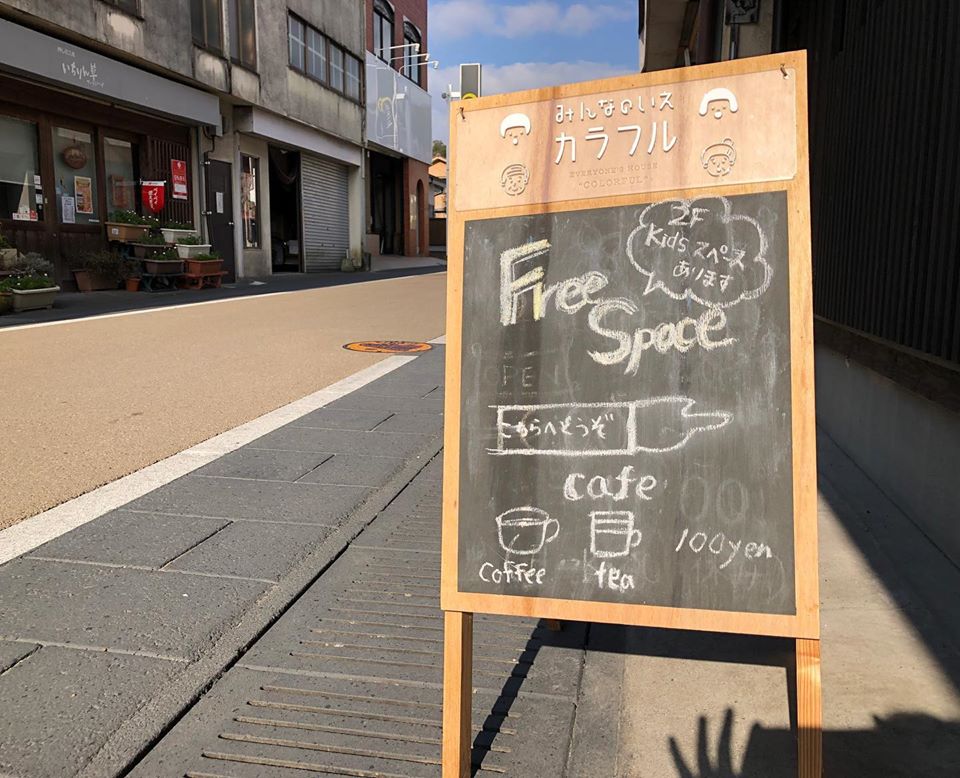 いちりん草
みんなのいえ
カラフル
EVERYONE'S HOUSE
"COLORFUL"
2F
Kid's スペース
あります
Free
Space
OPEN
こちらへどうぞ
cafe
coffee
tea
100yen